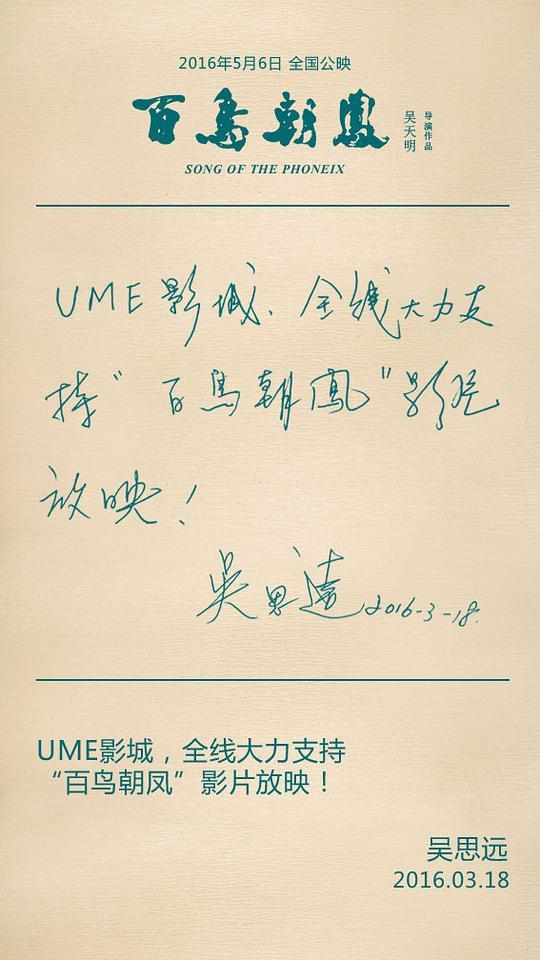 2016年5月6日 全国公映
百鳥朝鳳
吴天明
导演作品
SONG OF THE PHONEIX
UME影城、全线大力支
持“百鸟朝凤”影片
放映！
吴思远 2016-3-18.
UME影城，全线大力支持
“百鸟朝凤”影片放映！
吴思远
2016.03.18